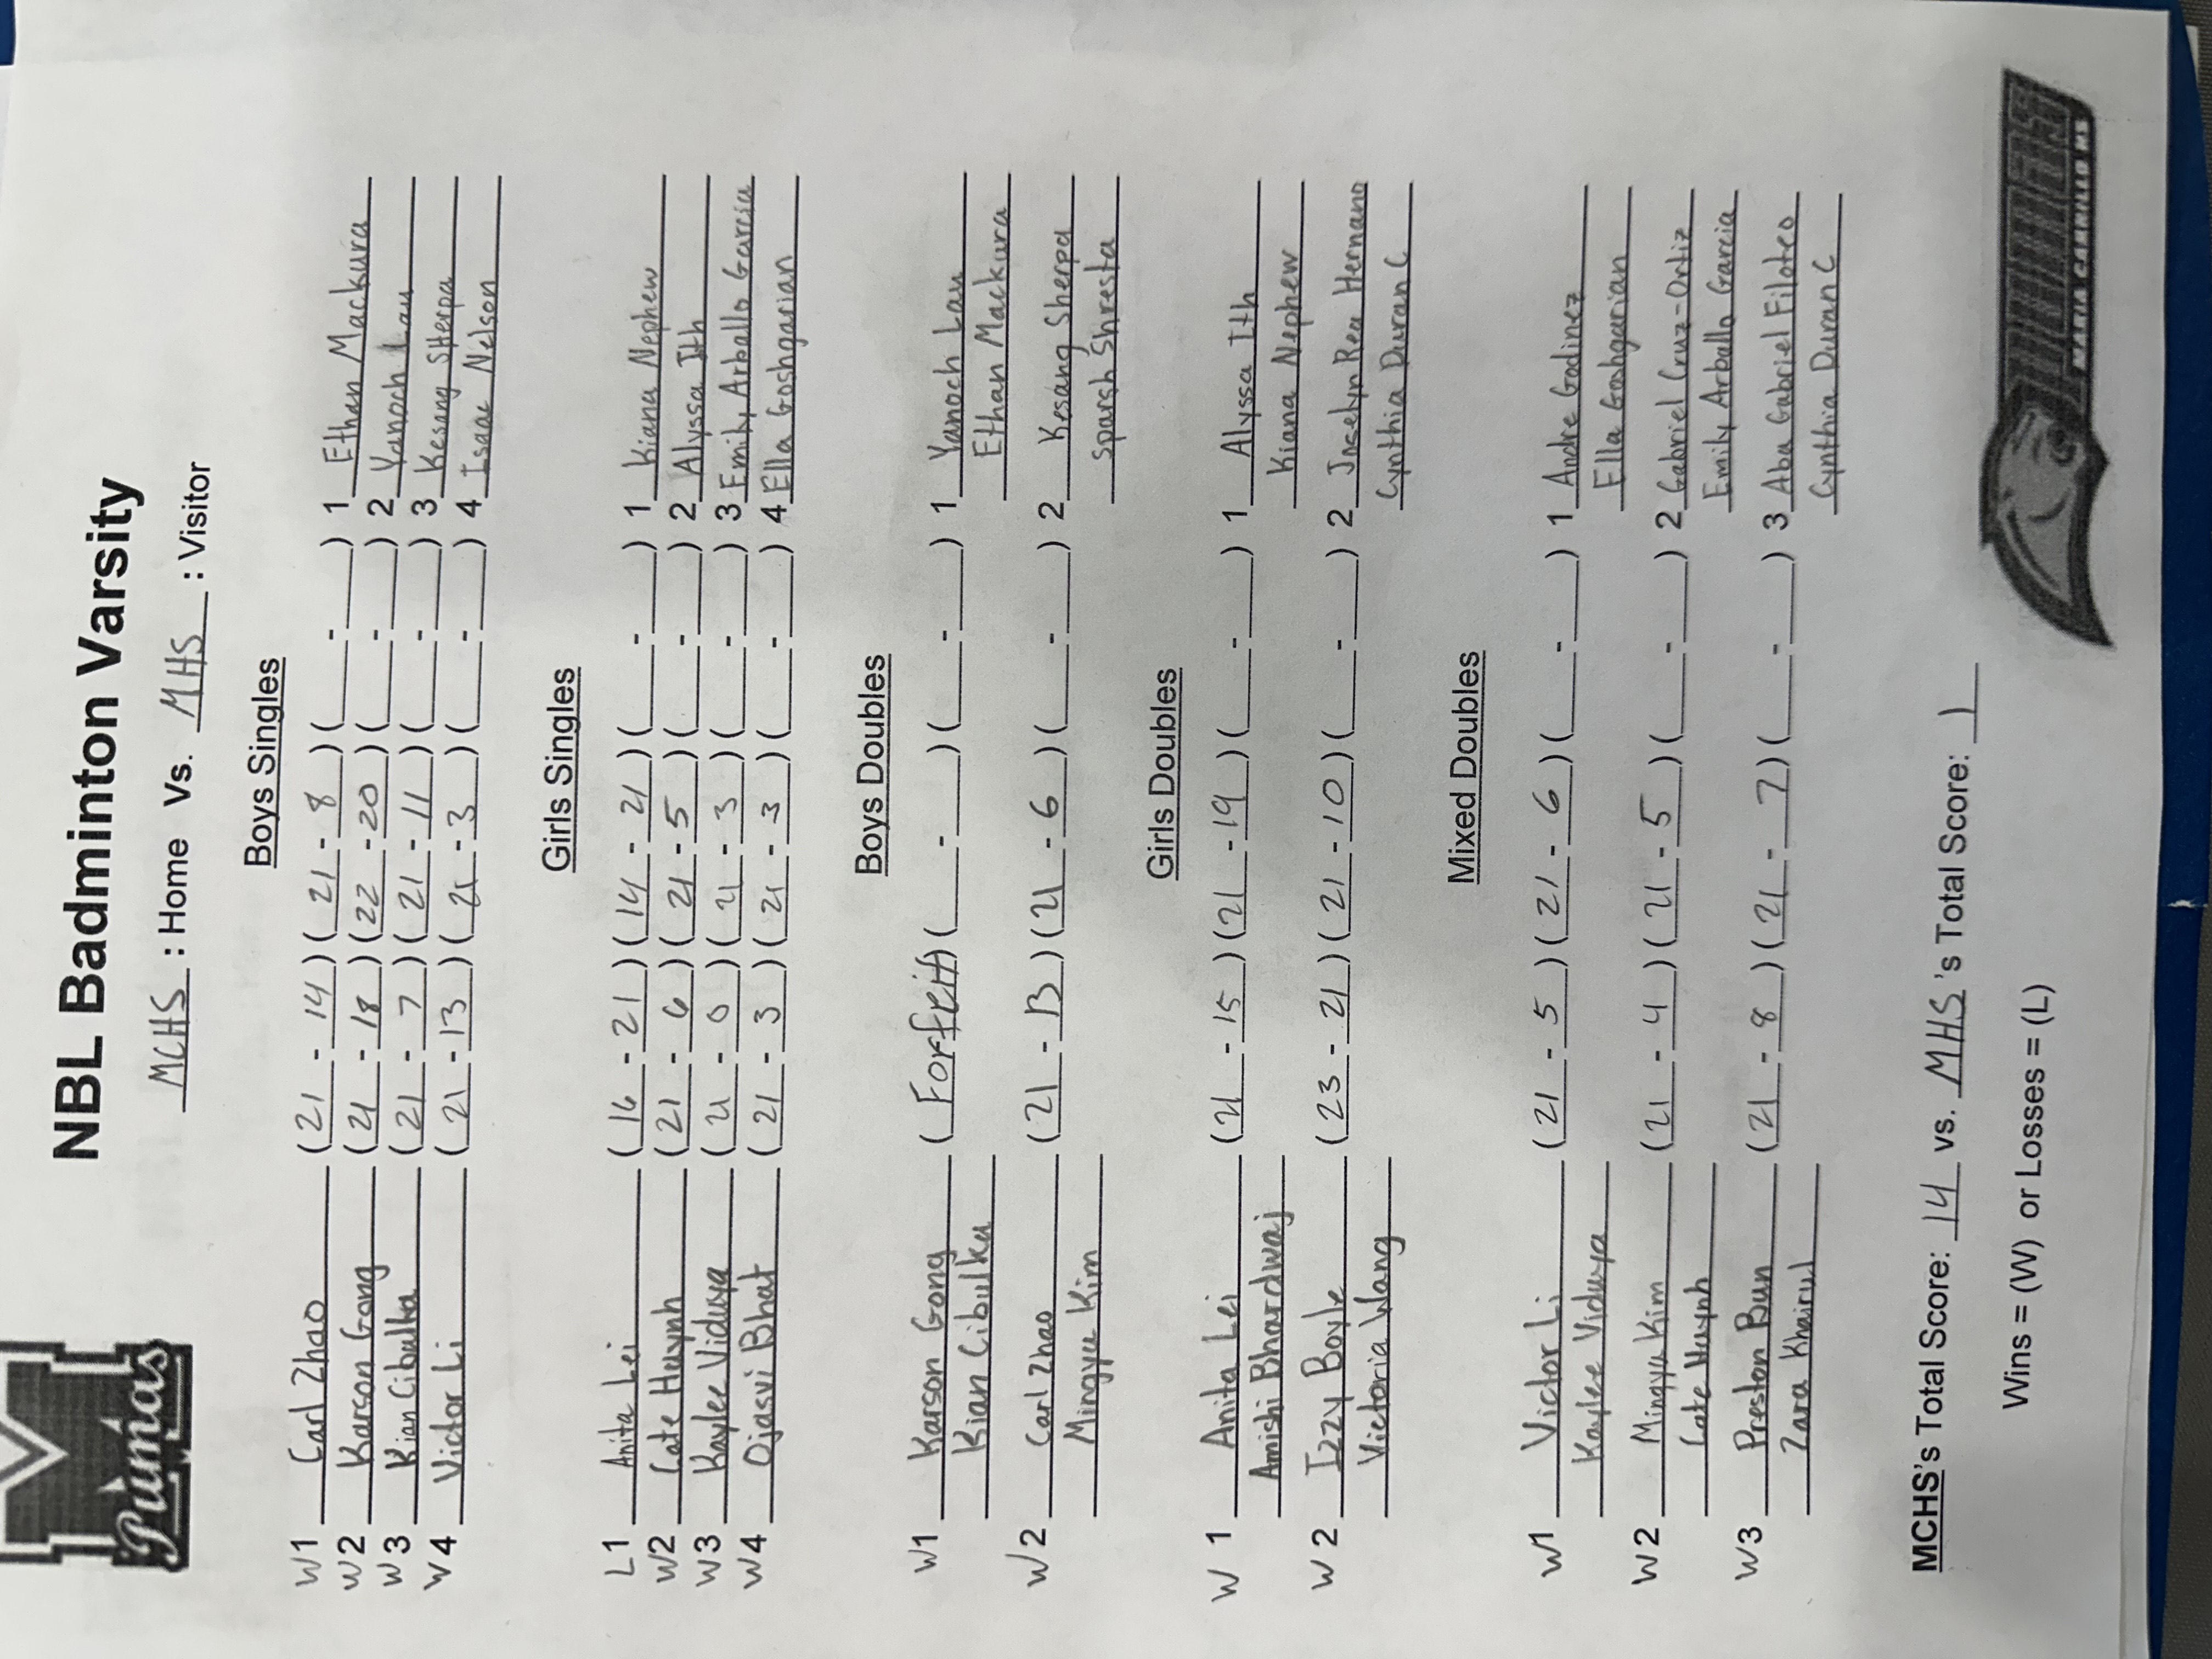 Pumas
NBL Badminton Varsity
MCHS : Home Vs. MHS : Visitor
Boys Singles
W1 Carl Zhao (21 - 14) (21 - 8) ( - ) 1 Ethan Mackura
W2 Karson Gong (21 - 18) (22 - 20) ( - ) 2 Yanoch Lau
W3 Kian Cibulka (21 - 7) (21 - 11) ( - ) 3 Kesang SHerpa
W4 Victor Li (21 - 13) (21 - 3) ( - ) 4 Isaac Nelson
Girls Singles
L1 Anita Lei (16 - 21) (14 - 21) ( - ) 1 Kiana Nephew
W2 Cate Huynh (21 - 6) (21 - 5) ( - ) 2 Alyssa Ith
W3 Kaylee Viduya (21 - 0) (21 - 3) ( - ) 3 Emily Arballo Garcia
W4 Ojasvi Bhat (21 - 3) (21 - 3) ( - ) 4 Ella Goshgarian
Boys Doubles
W1 Karson Gong (Forfeit) ( - ) ( - ) 1 Yanoch Lau
Kian Cibulka Ethan Mackura
W2 Carl Zhao (21 - 13) (21 - 6) ( - ) 2 Kesang Sherpa
Mingyu Kim Sparsh Shresta
Girls Doubles
W 1 Anita Lei (21 - 15) (21 - 19) ( - ) 1 Alyssa Ith
Amishi Bhardwaj Kiana Nephew
W 2 Izzy Boyle (23 - 21) (21 - 10) ( - ) 2 Joselyn Rea Hernano
Victoria Wang Cynthia Duran C
Mixed Doubles
W1 Victor Li (21 - 5) (21 - 6) ( - ) 1 Andre Godinez
Kaylee Viduya Ella Goshgarian
W2 Mingyu Kim (21 - 4) (21 - 5) ( - ) 2 Gabriel Cruz-Ortiz
Cate Huynh Emily Arballo Garcia
W3 Preston Bun (21 - 8) (21 - 7) ( - ) 3 Aba Gabriel Filoteo
Zara Khairul Cynthia Duran C
MCHS's Total Score: 14 vs. MHS's Total Score: 1
Wins = (W) or Losses = (L)
PUMAS
MARIA CARRILLO HS